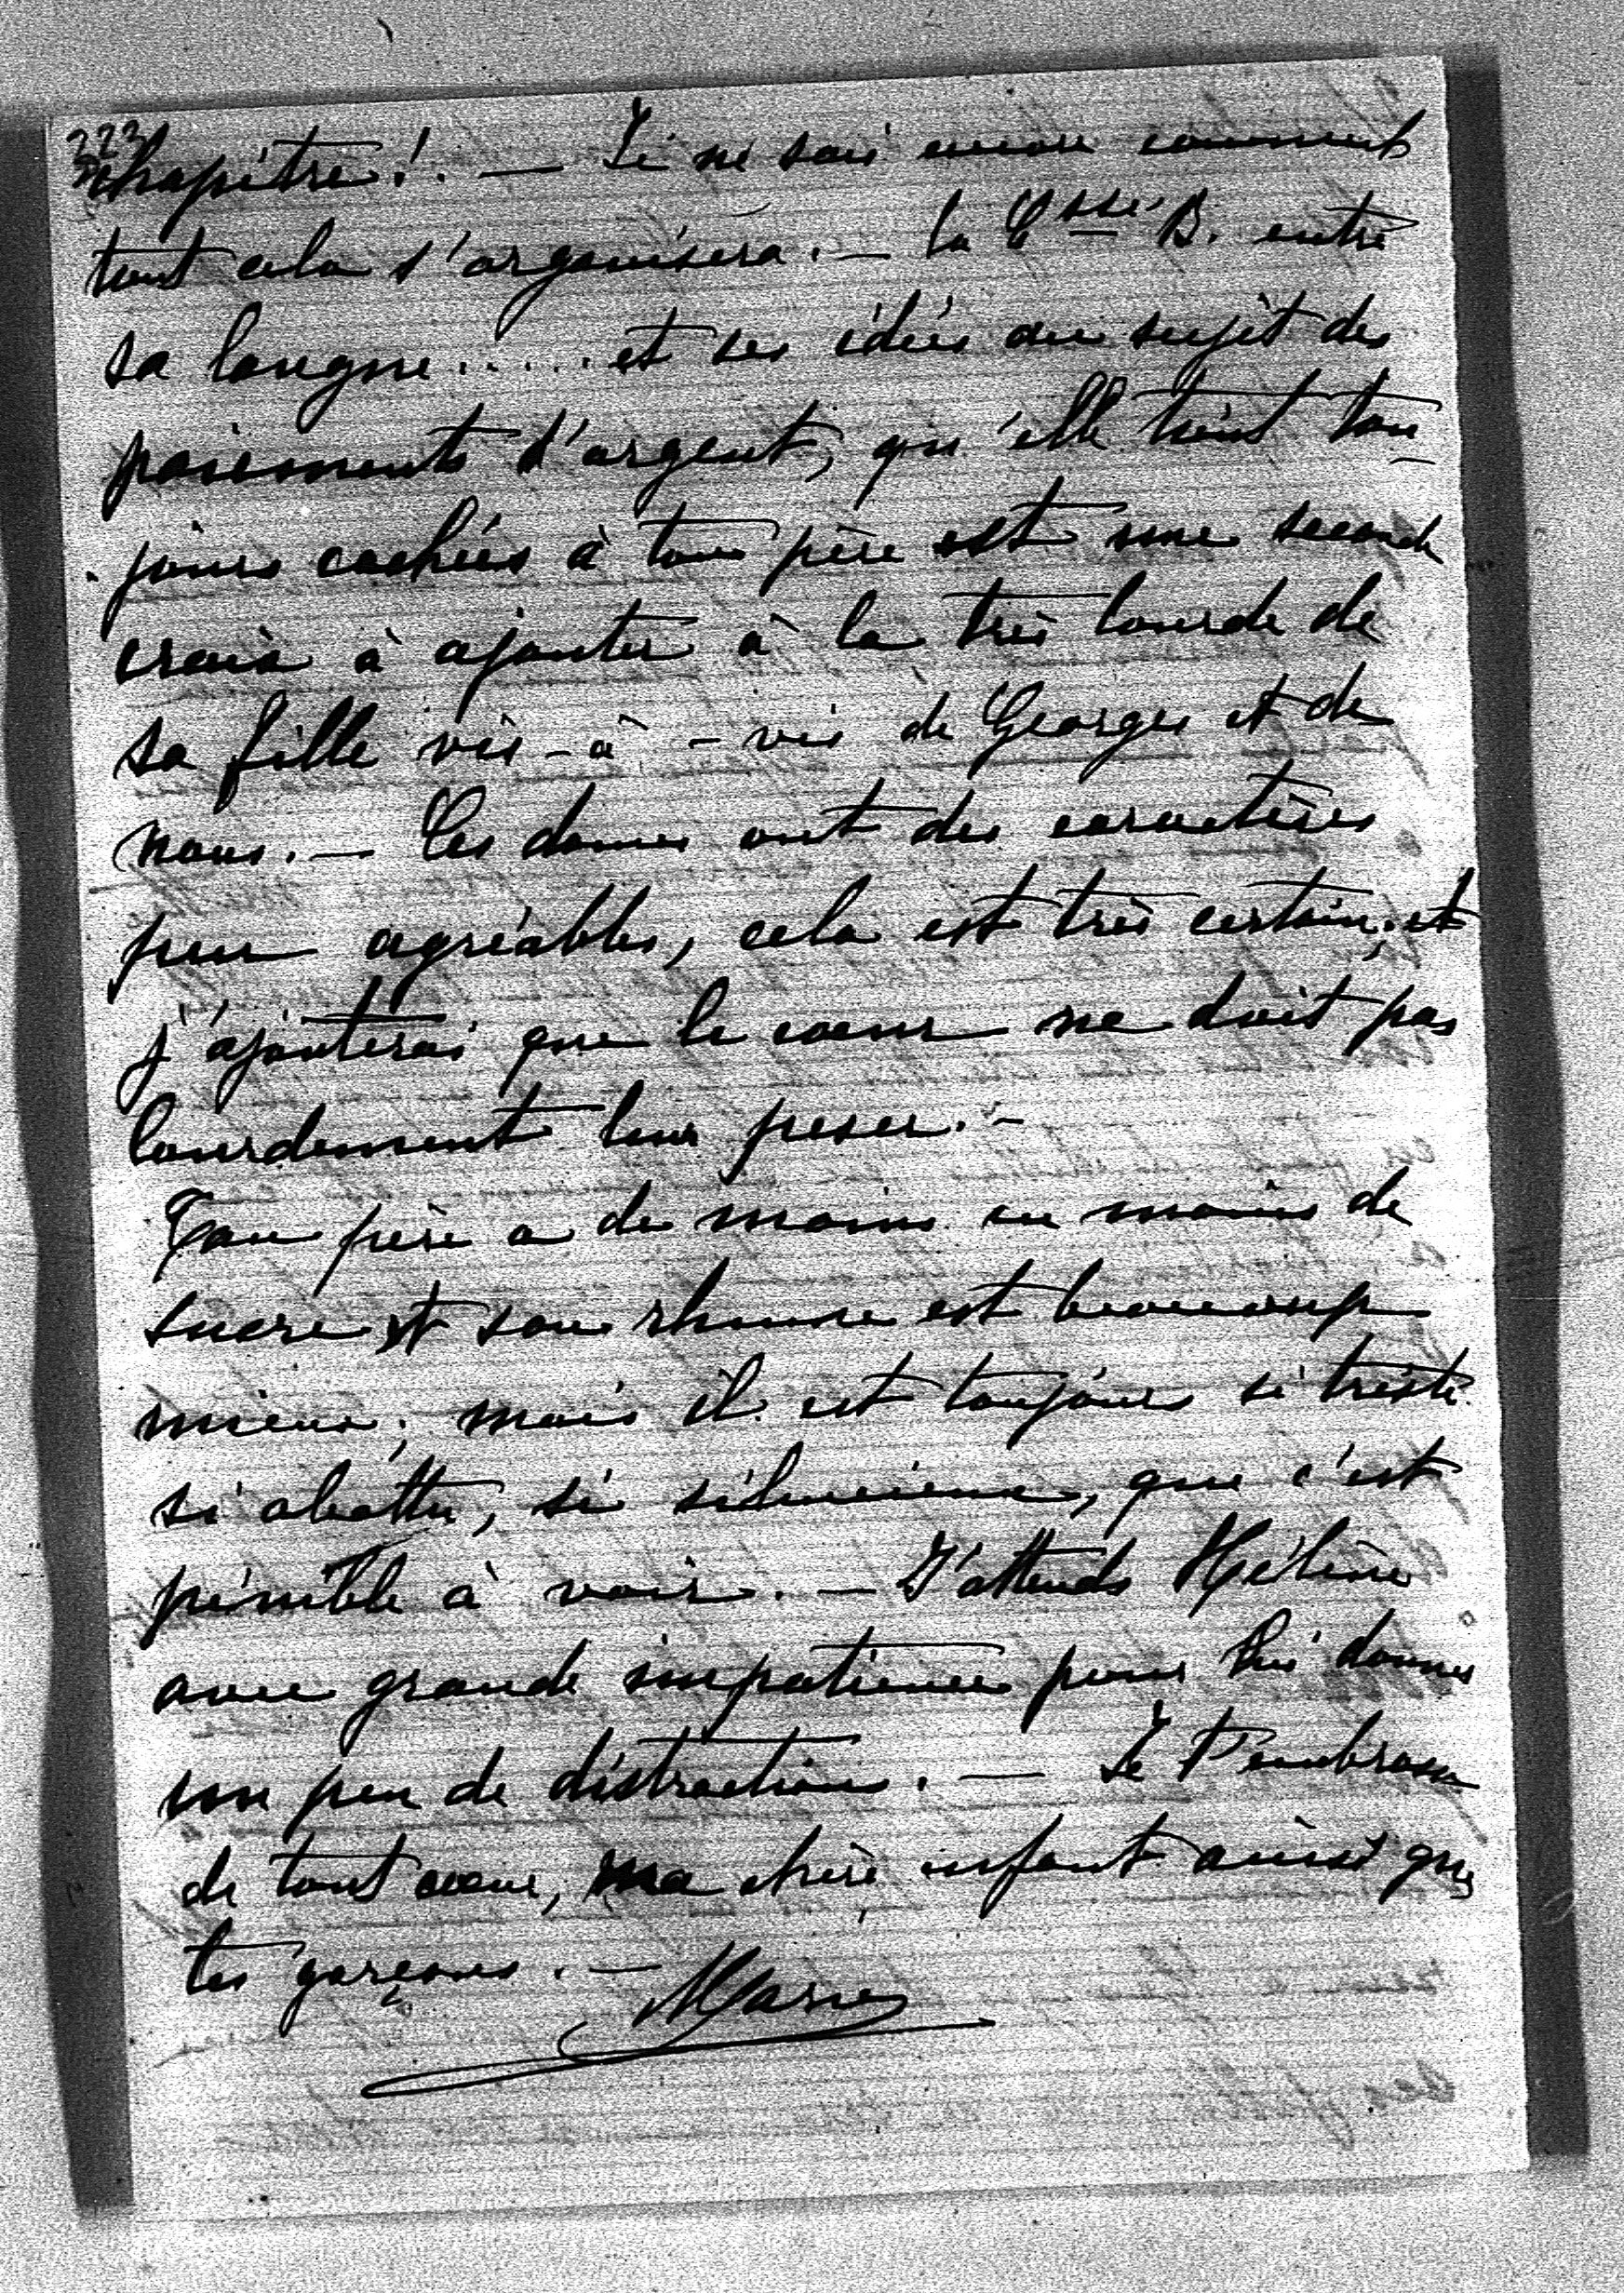 223
chapitre! — Je ne sais encore comment
tout cela s'organisera. — la Csse B. entre
sa langue..... et ses idées au sujet des
paiements d'argent, qu'elle tient tou-
jours cachées à ton père est une seconde
croix à ajouter à la très lourde de
sa fille vis-à-vis de Georges et de
nous. — Ces dames ont des caractères
peu agréables, cela est très certain, et
j'ajouterai que le coeur ne doit pas
lourdement leur peser. —
Ton père a de moins en moins de
sucre et son rhume est beaucoup
mieux; mais il est toujours si triste
si abattu, si silencieux, que c'est
pénible à voir. — J'attends Hélène
avec grande impatience pour lui donner
un peu de distraction. — Je t'embrasse
de tout coeur, ma chère enfant ainsi que
tes garçons. —
Marie